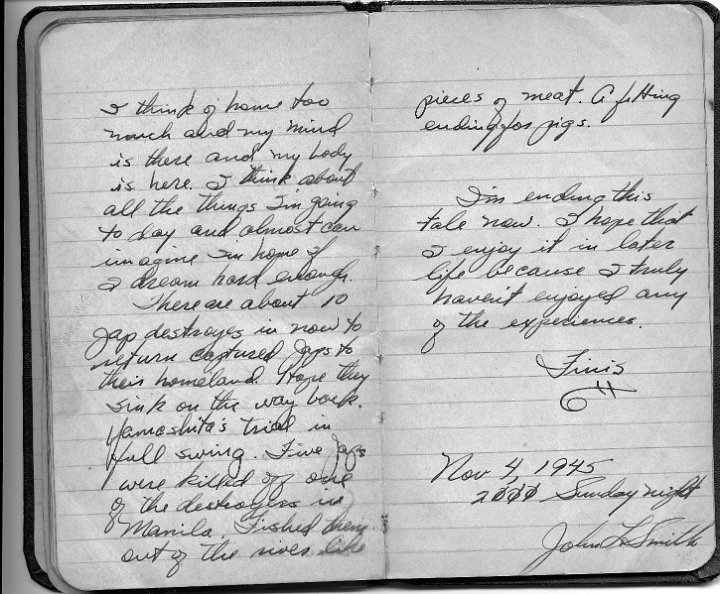 I think of home too
much and my mind
is there and my body
is here. I think about
all the things I'm going
to say and almost can
imagine I'm home if
I dream hard enough.
There are about 10
Jap destroyes in now to
return captured Japs to
their homeland. Hope they
sink on the way back.
Yamashita's trial in
full swing. Five Japs
were killed off one
of the destroyers in
Manila. Fished them
out of the river like
pieces of meat. A fitting
ending for pigs.
I'm ending this
tale now. I hope that
I enjoy it in later
life because I truly
haven't enjoyed any
of the experiences.
Finis
Nov 4, 1945
2000 Sunday night
John L Smith